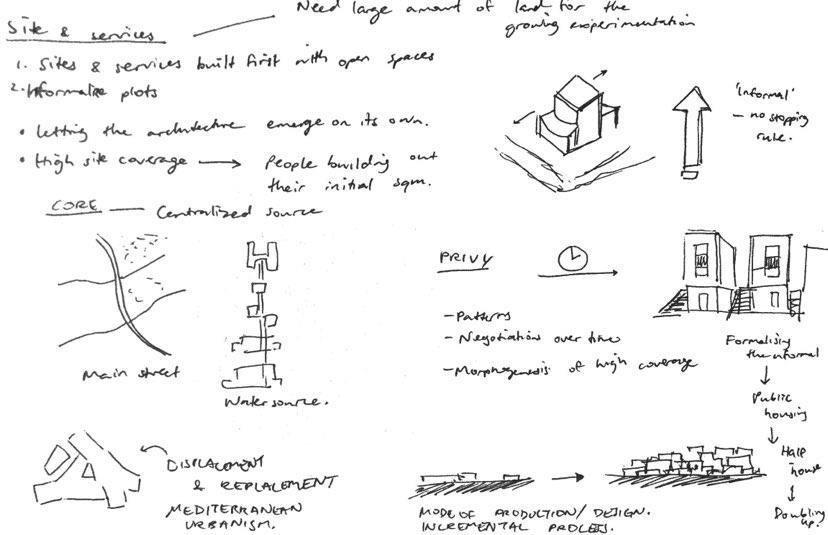 Need large amount of land for the
growing experimentation
Site & services
1. Sites & services built first with open spaces
2. Informalise plots
• Letting the architecture emerge on its own.
• High site coverage → People building out
their initial sqm.
'Informal'
– no stopping
rule.
CORE — Centralized source
Main street
Water source.
PRIVY
– Patterns
– Negotiations over time
– Morphogenesis of high coverage
Formalising
the informal
Public
housing
Half
house
Doubling
up.
DISPLACMENT
& REPLACEMENT
MEDITERRANEAN
URBANISM.
MODE OF PRODUCTION/ DESIGN.
INCREMENTAL